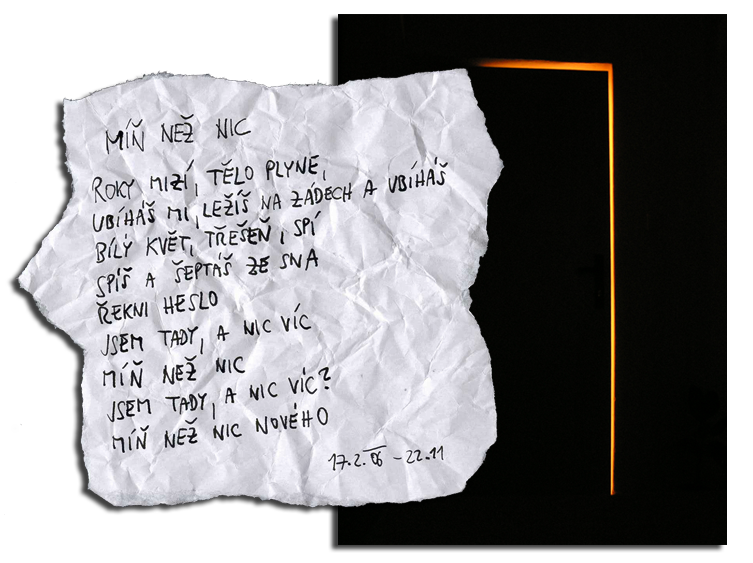 MÍŇ NEŽ NIC
ROKY MIZÍ, TĚLO PLYNE,
UBÍHÁŠ MI, LEŽÍŠ NA ZÁDECH A UBÍHÁŠ
BÍLÝ KVĚT, TŘEŠEŇ, SPÍ
SPÍŠ A ŠEPTÁŠ ZE SNA
ŘEKNI HESLO
JSEM TADY, A NIC VÍC
MÍŇ NEŽ NIC
JSEM TADY, A NIC VÍC?
MÍŇ NEŽ NIC NOVÉHO
17.2.06 – 22.11